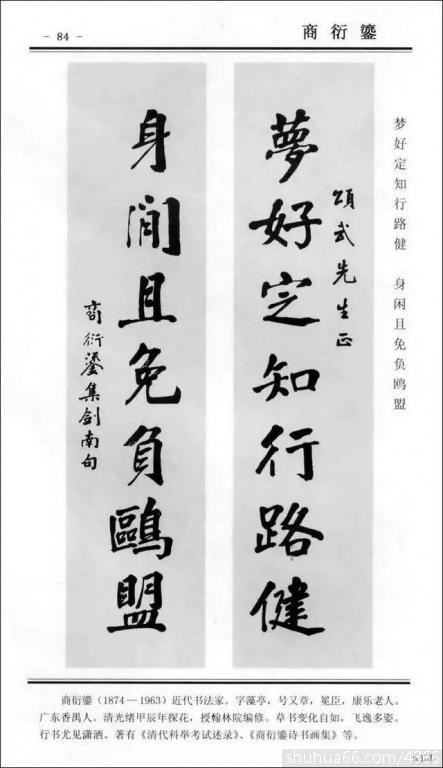 - 84 -
商衍鎏
梦好定知行路健 身闲且免负鸥盟
頌武先生正
夢好定知行路健
身閒且免負鷗盟
商衍鎏集劍南句
商衍鎏（1874—1963）近代书法家。字藻亭，号又章，冕臣，康乐老人。
广东香禺人。清光绪甲辰年探花，授翰林院编修。草书变化自如，飞逸多姿。
行书尤见潇洒。著有《清代科举考试述录》、《商衍鎏诗书画集》等。